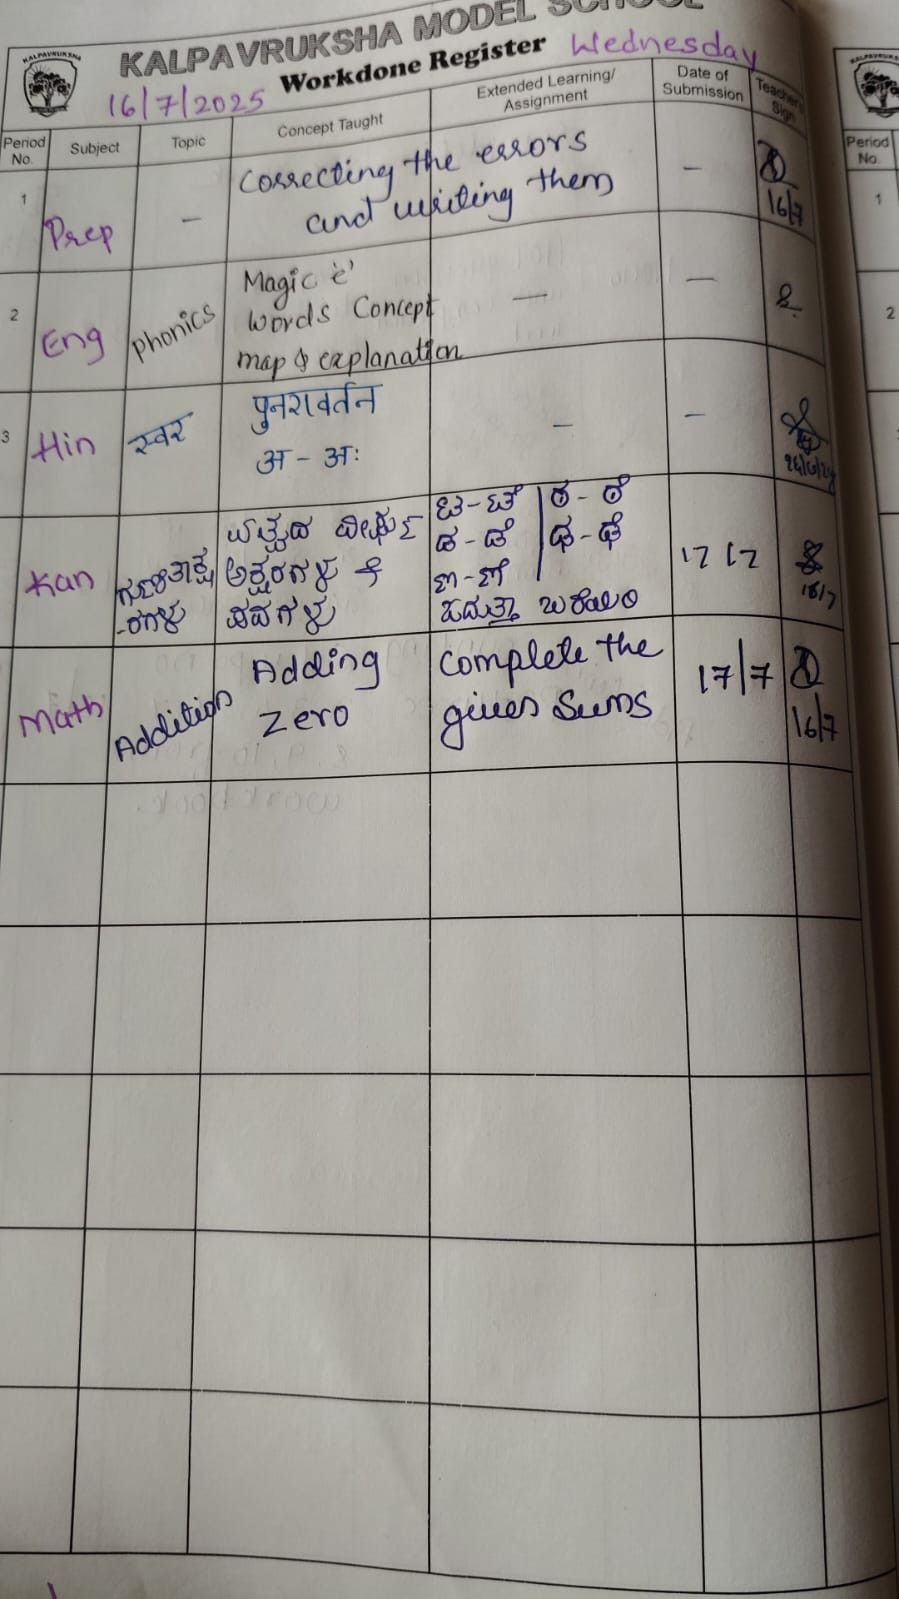 KALPAVRUKSHA MODEL SCHOOL
Workdone Register Wednesday
16/7/2025
Period No. Subject Topic Concept Taught Extended Learning/ Assignment Date of Submission Teacher's Sign
1 Prep - Correcting the errors and writing them - 16/7
2 Eng Phonics Magic 'e' words Concept map & explanation - -
3 Hin स्वर पुनरावर्तन अ - अः - -
Kan ಅಕ್ಷರಗಳು 17/7 16/7
Math Addition Adding Zero Complete the given Sums 17/7 16/7
Period No.
1
2